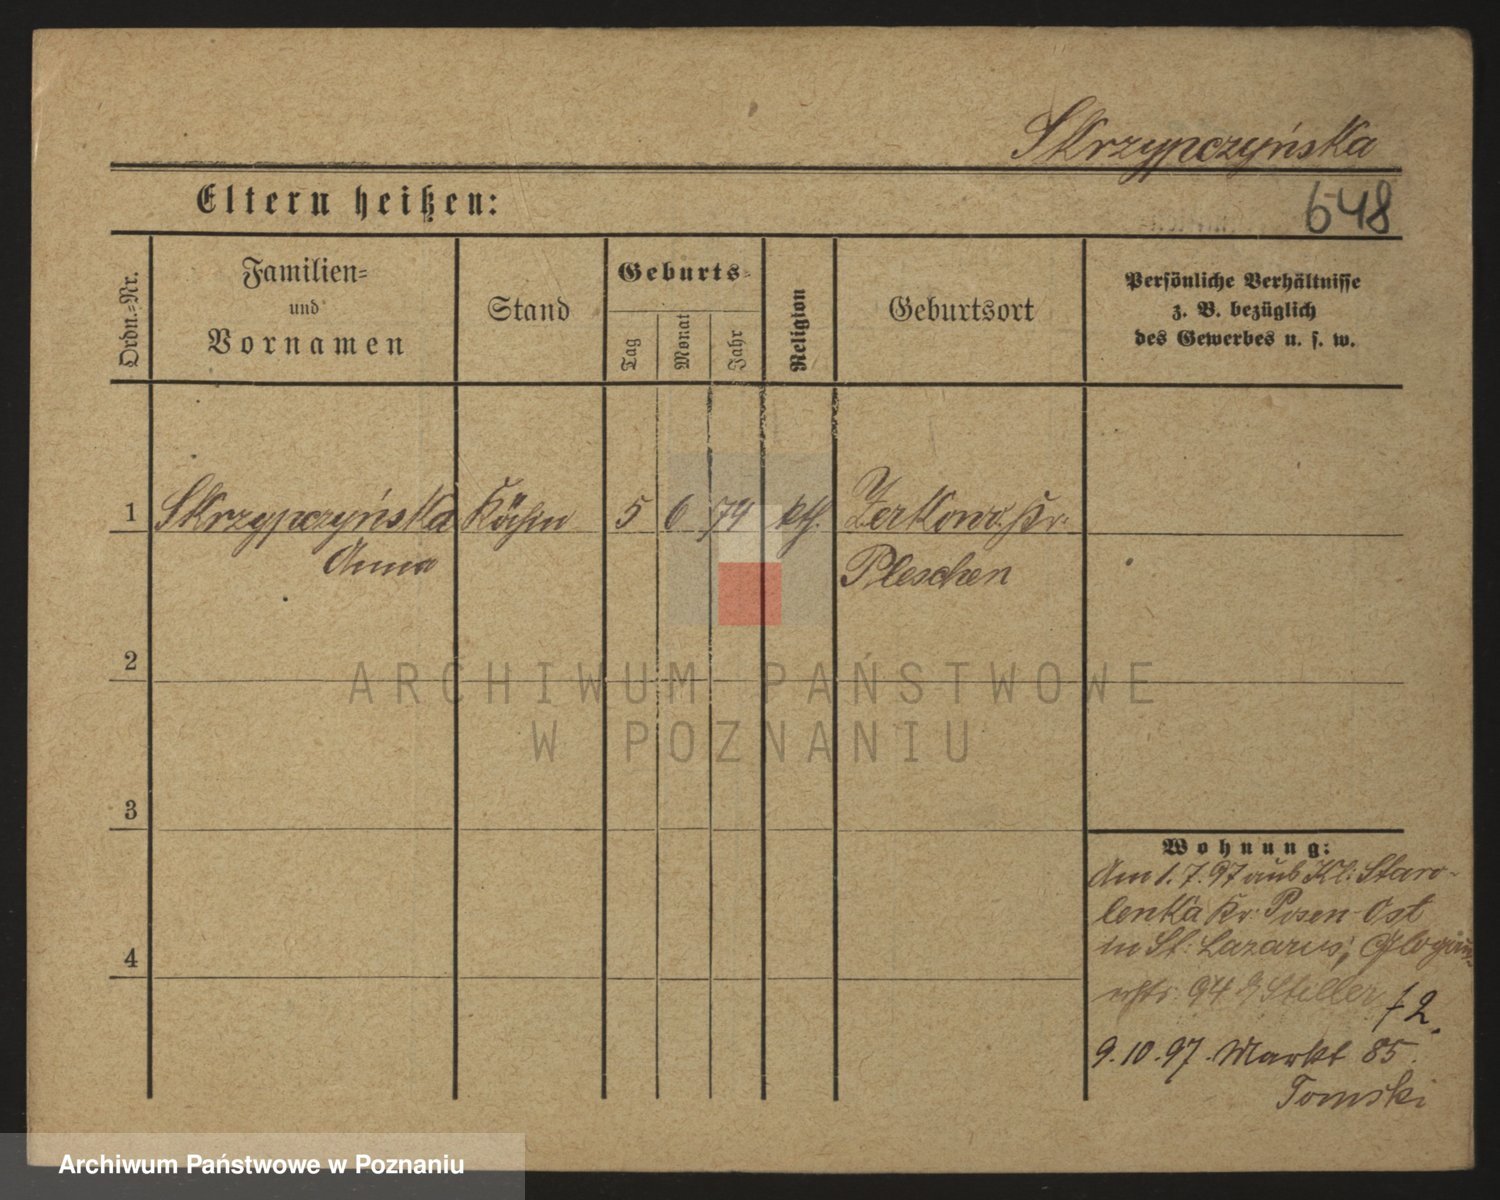 Skrzypczyńska
Eltern heißen:
648
Ordn.-Nr.
Familien-
und
Vornamen
Stand
Geburts-
Tag
Monat
Jahr
Religion
Geburtsort
Persönliche Verhältnisse
z. B. bezüglich
des Gewerbes u. s. w.
1
Skrzypczyńska
Anna
Köchin
5
6
74
kth.
Zerkowo Kr.
Pleschen
2
3
4
Wohnung:
Am 1. 7. 97 aus Kl: Staro-
lenka Kr. Posen-Ost
in St. Lazarus, Glogauer-
94 Steller
9.10.97. Markt 85.
Tomski
ARCHIWUM PAŃSTWOWE
W POZNANIU
Archiwum Państwowe w Poznaniu